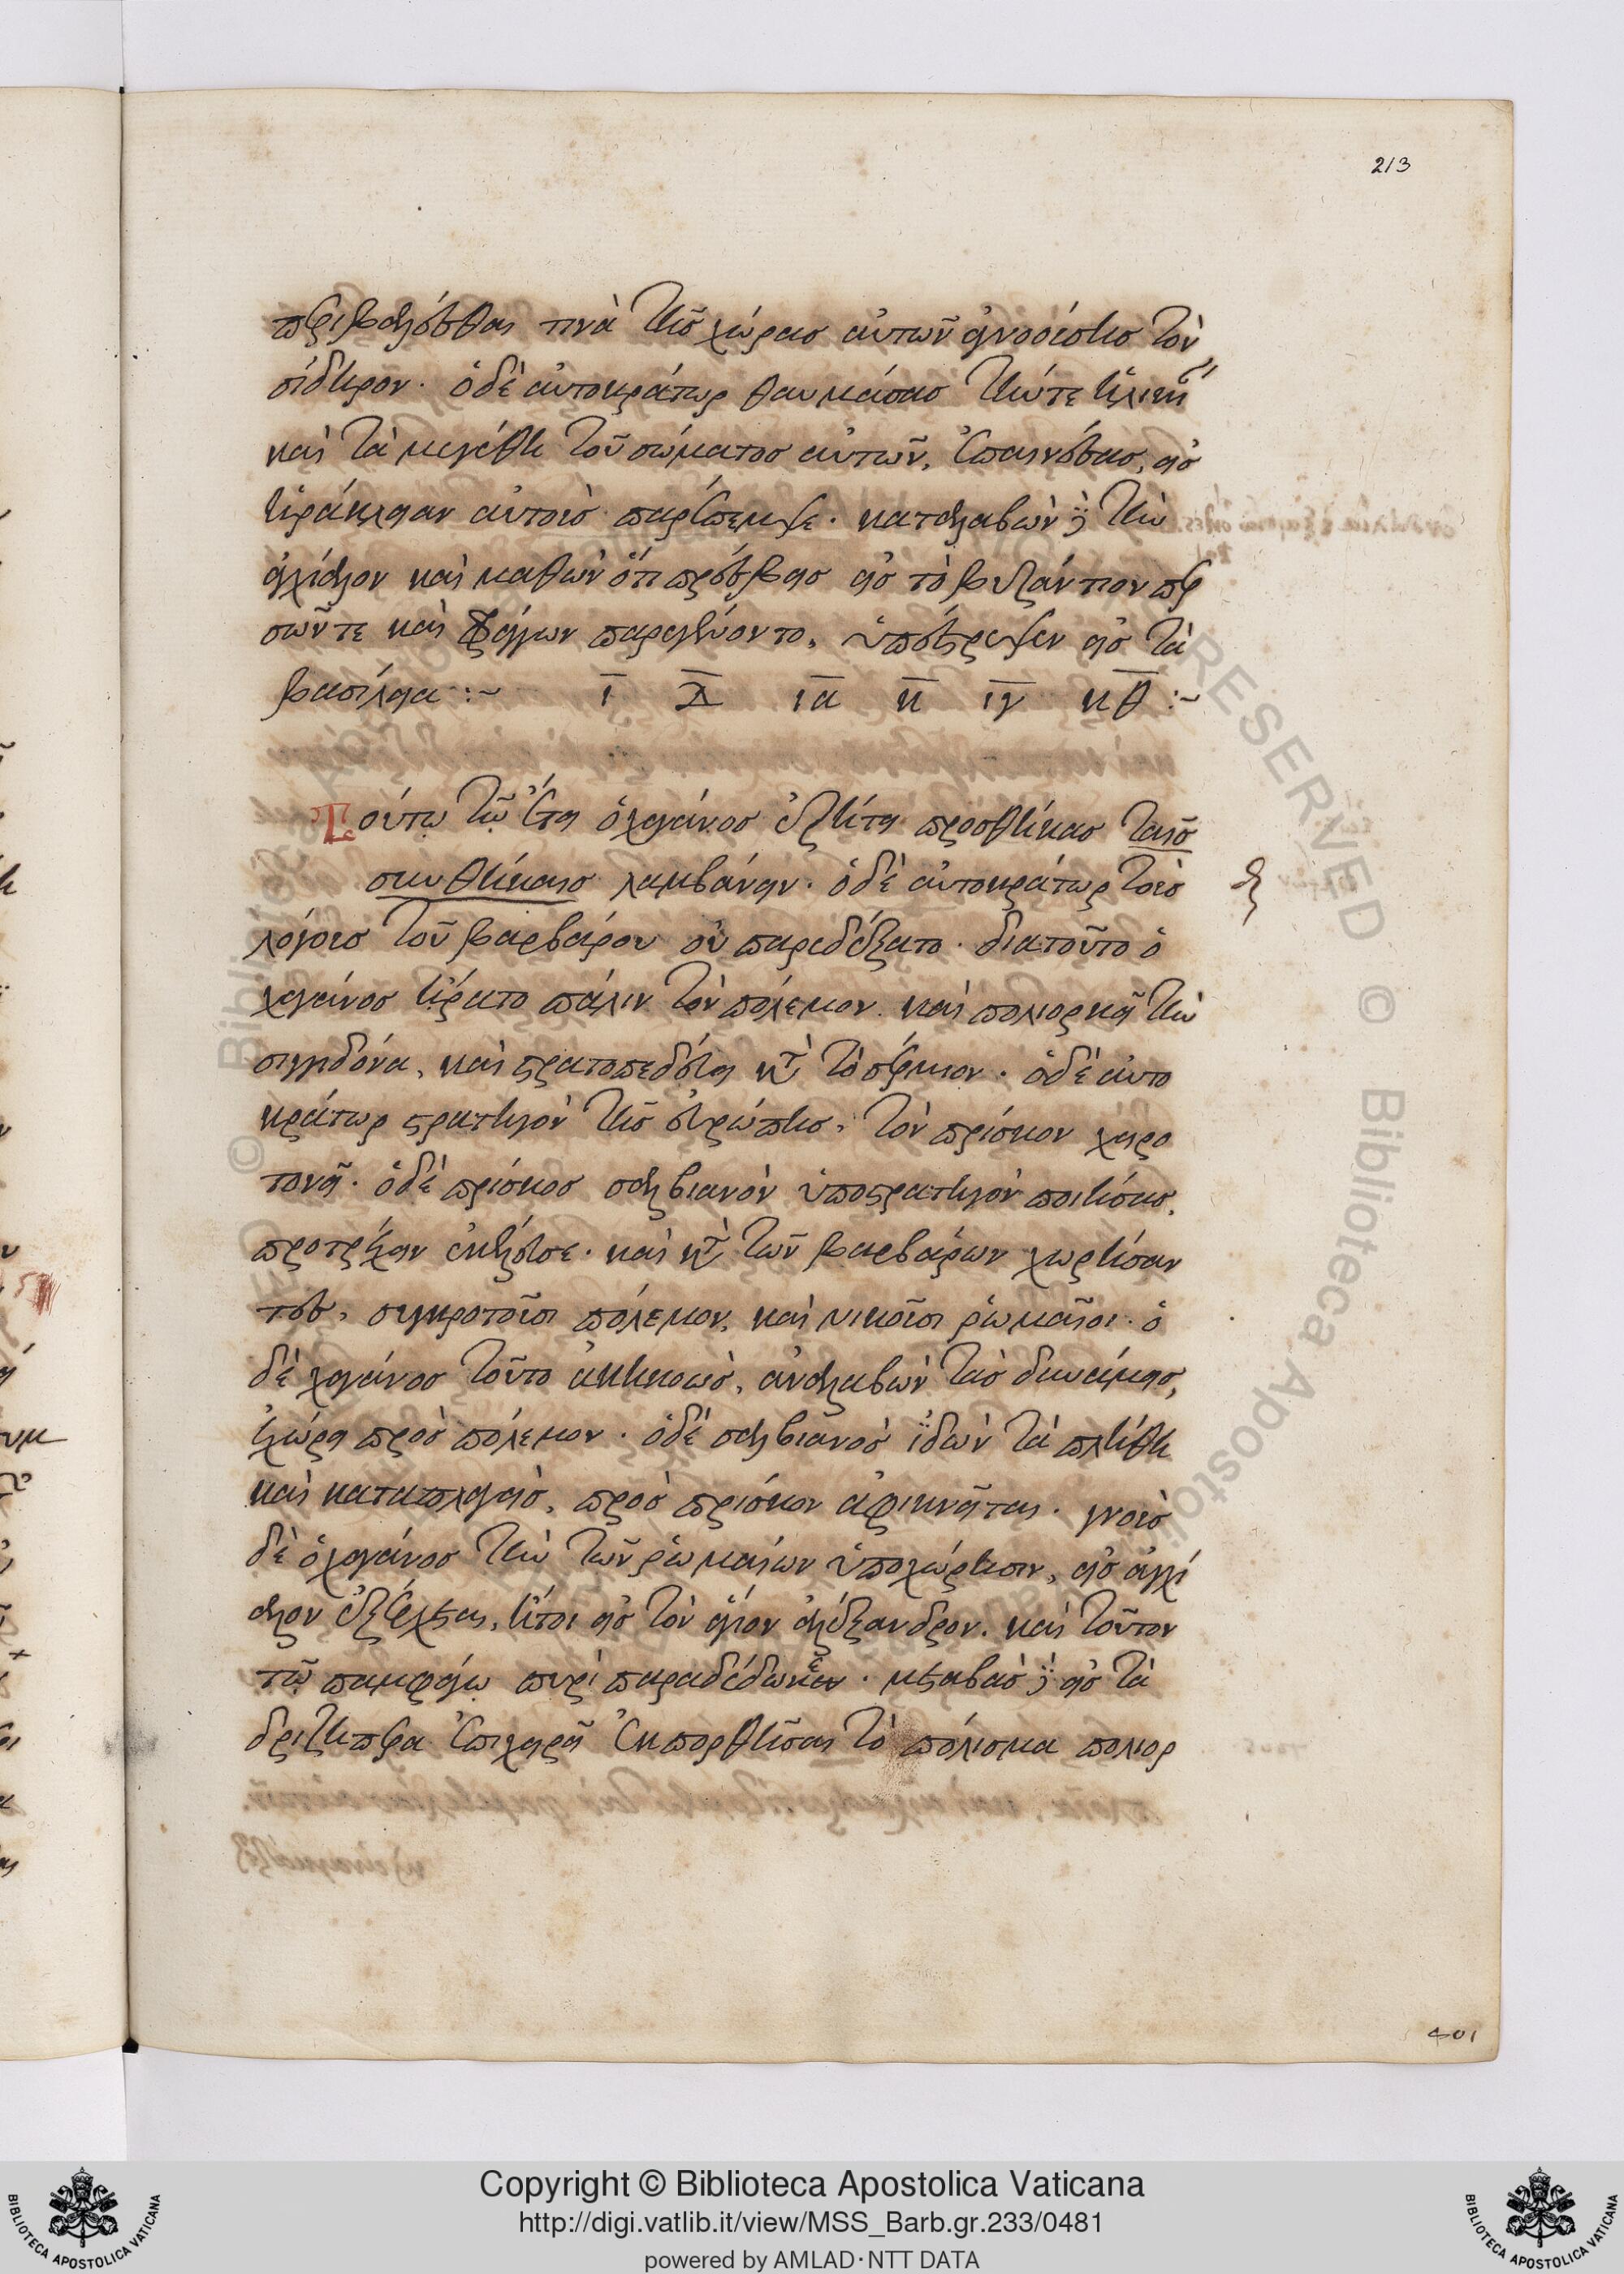 213
περιβαλέσθαι τινὰ τῆς χώρας αὐτῶν ἀγνοούσης τὸν
σίδηρον. ὁ δὲ αὐτοκράτωρ θαυμάσας τήν τε ἡλικί
καὶ τὰ μεγέθη τοῦ σώματος αὐτῶν, ἐπαινέσας, εἰς
ἡράκλειαν αὐτοὺς παρέπεμψε. καταλαβὼν δὲ τὴν
ἀγχίαλον καὶ μαθὼν ὅτι πρέσβεις εἰς τὸ βυζάντιον περ
σῶν τε καὶ φράγγων παρεγένοντο, ὑπέστρεψεν εἰς τὰ
βασίλεια :~ ι λ ια κ ιγ κθ :~
Τούτῳ τῷ ἔτει ὁ χαγάνος ἐζήτει προσθήκας ταῖς
συνθήκαις λαμβάνειν. ὁ δὲ αὐτοκράτωρ τοὺς
λόγους τοῦ βαρβάρου οὐ παρεδέξατο. διατοῦτο ὁ
χαγάνος ἤρατο πάλιν τὸν πόλεμον. καὶ πολιορκεῖ τὴν
σιγγιδόνα, καὶ στρατοπεδεύει κατὰ τὸ σέρμιον. ὁ δὲ αὐτο
κράτωρ στρατηγὸν τῆς εὐρώπης, τὸν πρίσκον χειρο
τονεῖ. ὁ δὲ πρίσκος σαλβιανὸν ὑποστρατηγὸν ποιήσας,
προτρέχειν ἐκέλευσε. καὶ κατὰ τῶν βαρβάρων χωρήσαν
τες, συγκροτοῦσι πόλεμον, καὶ νικοῦσι ῥωμαῖοι. ὁ
δὲ χαγάνος τοῦτο ἀκηκοὼς, ἀναλαβὼν τὰς δυνάμεις,
ἐχώρει πρὸς πόλεμον. ὁ δὲ σαλβιανὸς ἰδὼν τὰ πλήθη
καὶ καταπλαγεὶς, πρὸς πρίσκον ἀφικνεῖται. γνοὺς
δὲ ὁ χαγάνος τὴν τῶν ῥωμαίων ὑποχώρησιν, εἰς ἀγχί
αλον ἐξέρχεται, ἤτοι εἰς τὸν ἅγιον ἀλέξανδρον. καὶ τοῦτον
τῷ παμφάγῳ πυρὶ παραδέδωκεν. μεταβὰς δὲ εἰς τὰ
δριζήπερα ἐπιχειρεῖ ἐκπορθῆσαι τὸ πόλισμα πολιορ
401
BIBLIOTECA APOSTOLICA VATICANA
Copyright © Biblioteca Apostolica Vaticana
http://digi.vatlib.it/view/MSS_Barb.gr.233/0481
powered by AMLAD·NTT DATA
BIBLIOTECA APOSTOLICA VATICANA